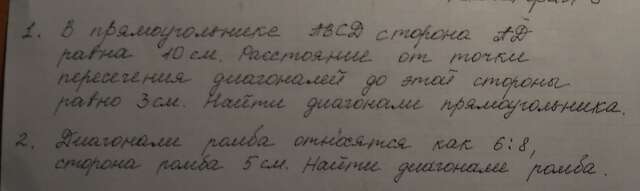 1. В прямоугольнике ABCD сторона AD
равна 10 см. Расстояние от точки
пересечения диагоналей до этой стороны
равно 3 см. Найти диагонали прямоугольника.
2. Диагонали ромба относятся как 6:8,
сторона ромба 5 см. Найти диагонали ромба.